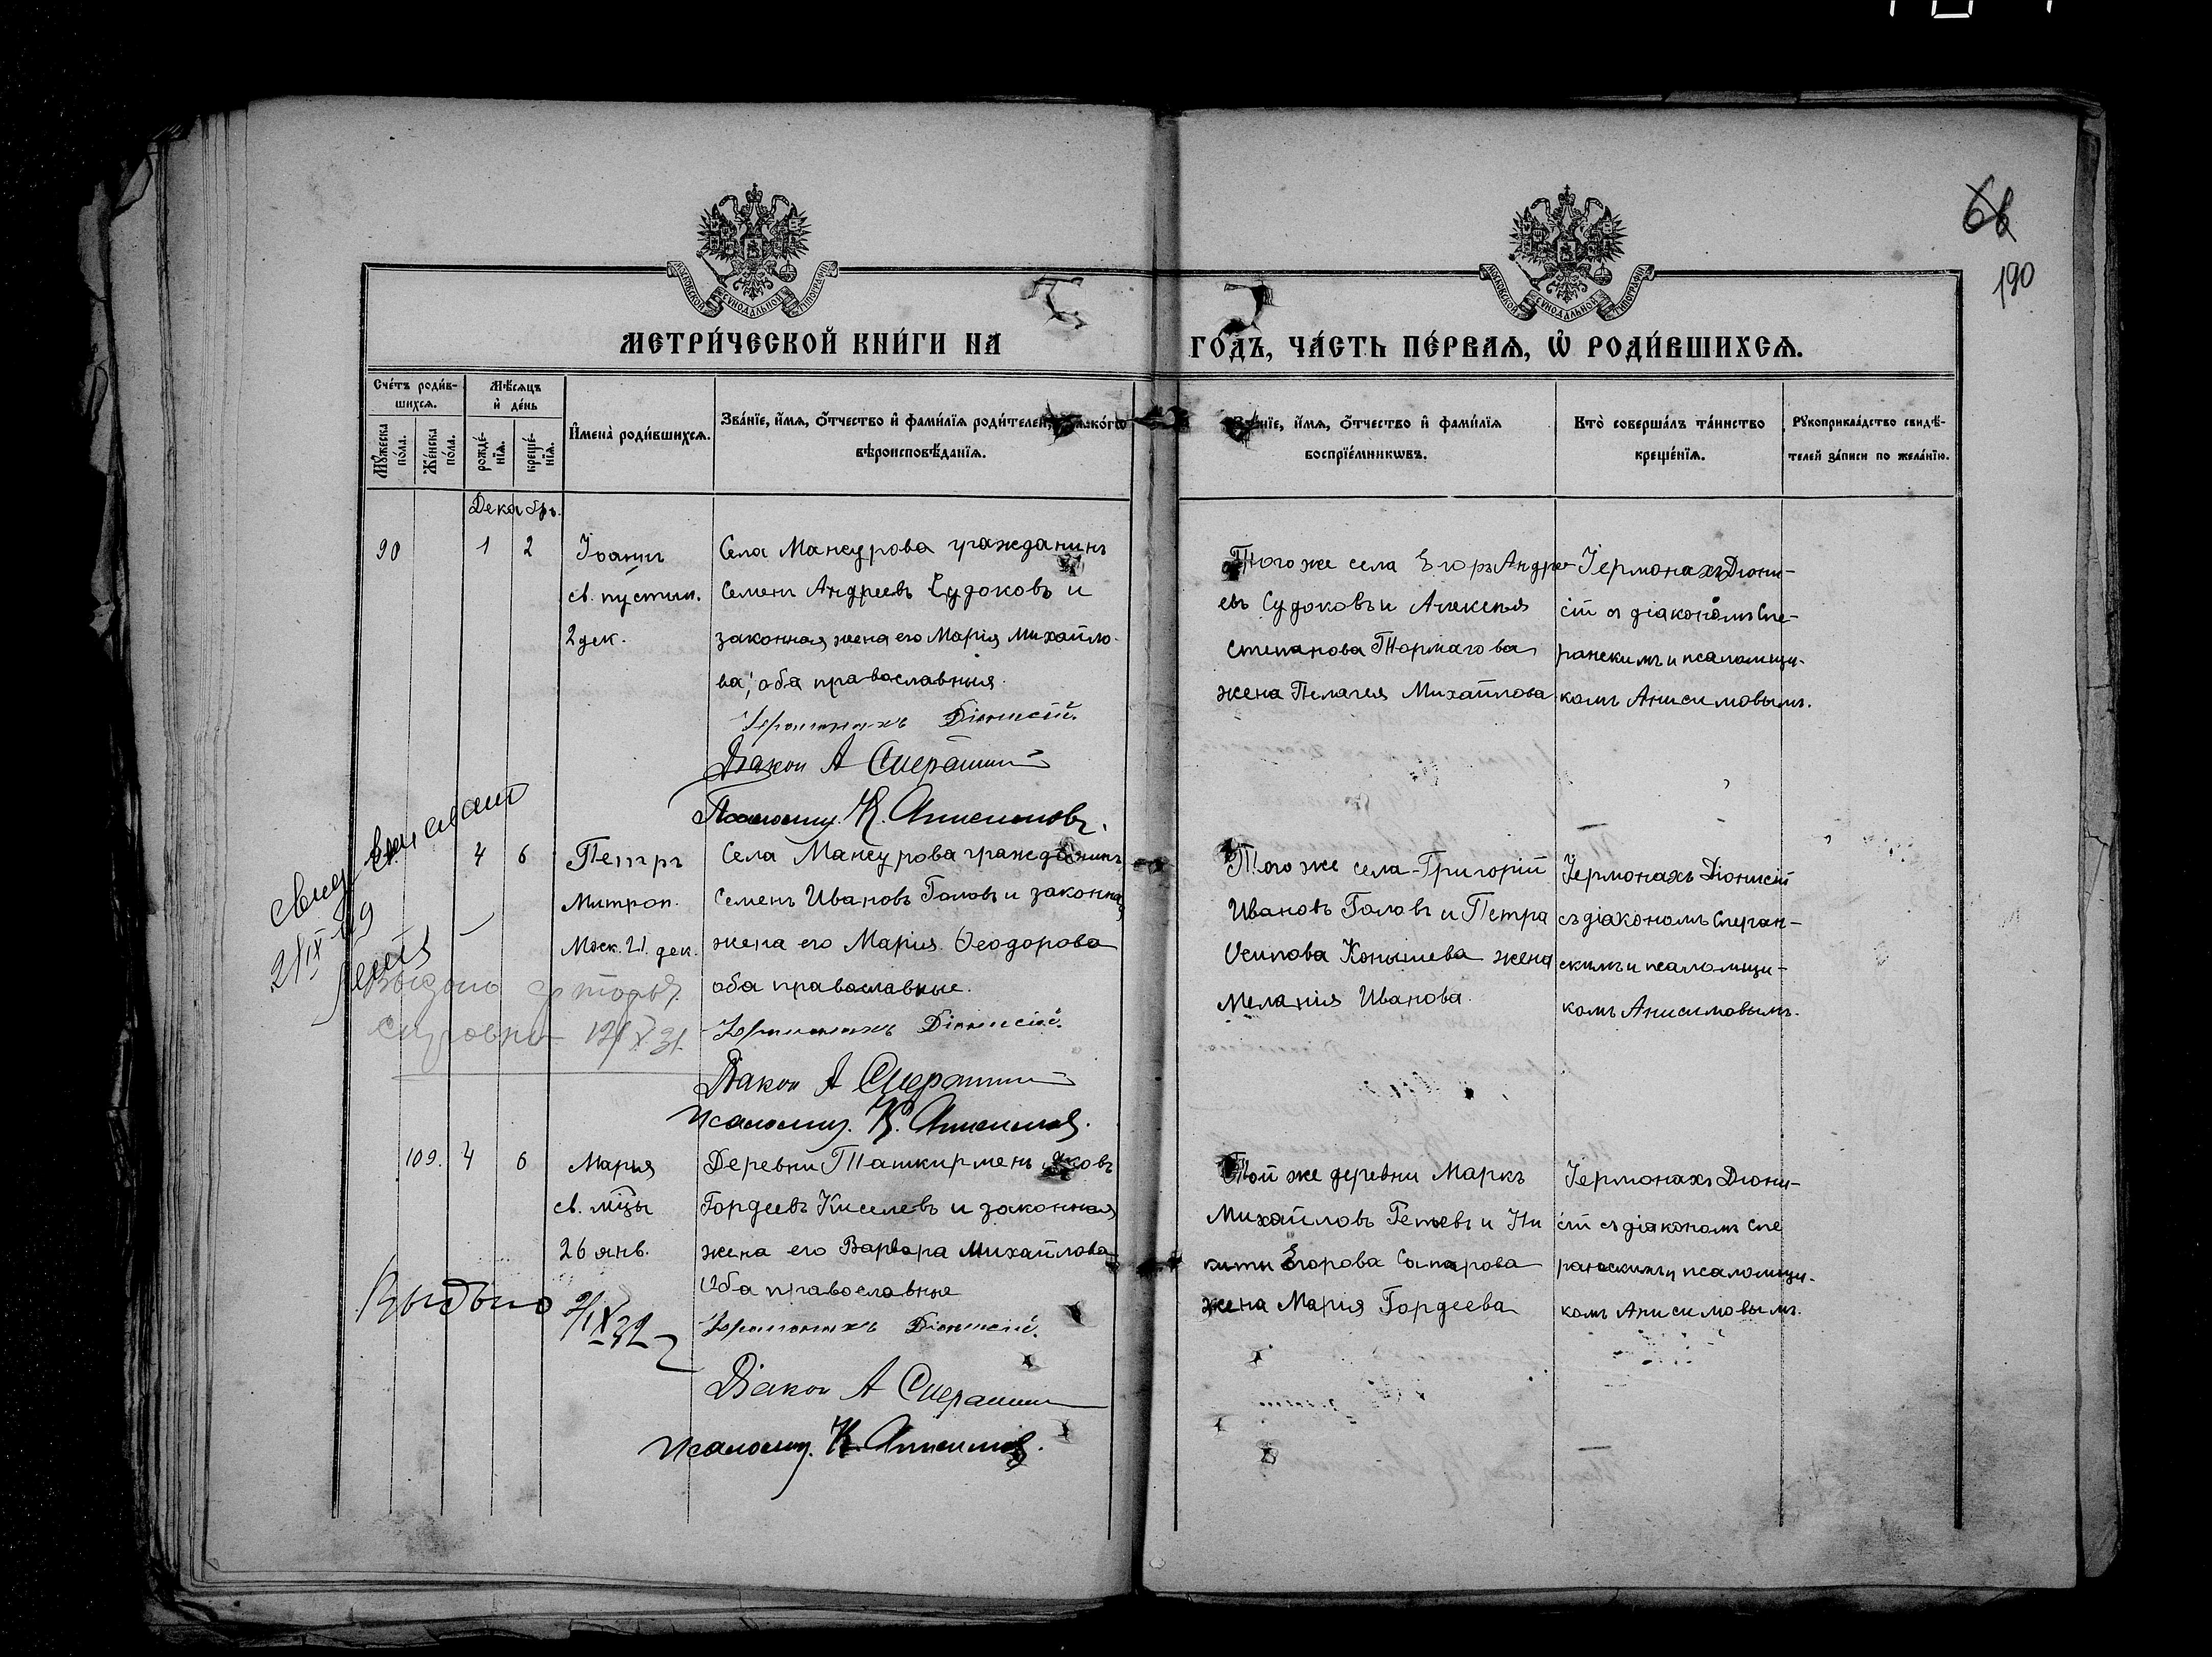 68
190
МОСКОВСКОЙ СѴНОДАЛЬНОЙ ТИПОГРАФІИ
МОСКОВСКОЙ СѴНОДАЛЬНОЙ ТИПОГРАФІИ
МЕТРИ́ЧЕСКОЙ КНИ́ГИ НА
ГО́ДЪ, ЧА́СТЬ ПЕ́РВАѦ, Ѡ҆ РОДИ́ВШИХСѦ.
Сче́тъ роди́в-
шихсѧ.
Мꙋ́жеска по́ла.
Же́нска по́ла.
Мѣ́сѧцъ
и҆ де́нь
рожде́-
нїѧ.
креще́-
нїѧ.
И҆мена̀ роди́вшихсѧ.
Зва́нїе, и҆́мѧ, ѻ҆́тчество и҆ фами́лїѧ роди́телей,
вѣроисповѣ́данїѧ.
и҆́мѧ, ѻ҆́тчество и҆ фами́лїѧ
воспрїе́мникѡвъ.
Кто̀ соверша́лъ та́инство
креще́нїѧ.
Рꙋкоприкла́дство свидѣ́-
телей за́писи по жела́нїю.
Декабрь.
90
1
2
Іоаннъ
св. пустын.
2 дек.
Села Мансурова гражданинъ
Семенъ Андреевъ Судоковъ и
законная жена его Марія Михайло-
ва; оба православныя.
Іеромонахъ Діонисій.
Діакон А Сперанский
Псаломщ. К. Анисимовъ.
Того же села Егоръ Андре-
евъ Судоковъ и Алексея
Степанова Тормагова
жена Пелагея Михайлова.
Іермонахъ Діони-
сій съ діакономъ Спе-
ранскимъ и псаломщи-
комъ Анисимовымъ.
4
6
Петръ
Митроп.
Моск. 21. дек.
Села Мансурова гражданинъ
Семенъ Ивановъ Головъ и законная
жена его Мария Ѳеодорова
оба православные.
Іеромонахъ Діонисій.
Діакон А Сперанский
Псаломщ. К. Анисимовъ.
Того же села Григорій
Ивановъ Головъ и Петра
Осипова Конышева жена
Меланія Иванова.
Іермонахъ Діонисій
съ діакономъ Сперан-
скимъ и псаломщи-
комъ Анисимовымъ.
21/IX
Выдано
12/X 31.
109.
4
6
Марья
св. мцы
26 янв.
Деревни Ташкирмень Яковъ
Гордеевъ Киселевъ и законная
жена его Варвара Михайлова
Оба православные
Іеромонахъ Діонисій.
Діакон А Сперанский
Псаломщ. К. Анисимовъ.
Той же деревни Маркъ
Михайловъ Гетевъ и Ни
киты Егорова Сапарова
жена Марія Гордеева
Іермонахъ Діони-
сій съ діакономъ Спе
ранскимъ и псаломщи-
комъ Анисимовымъ.
Выдано
9/IX 32